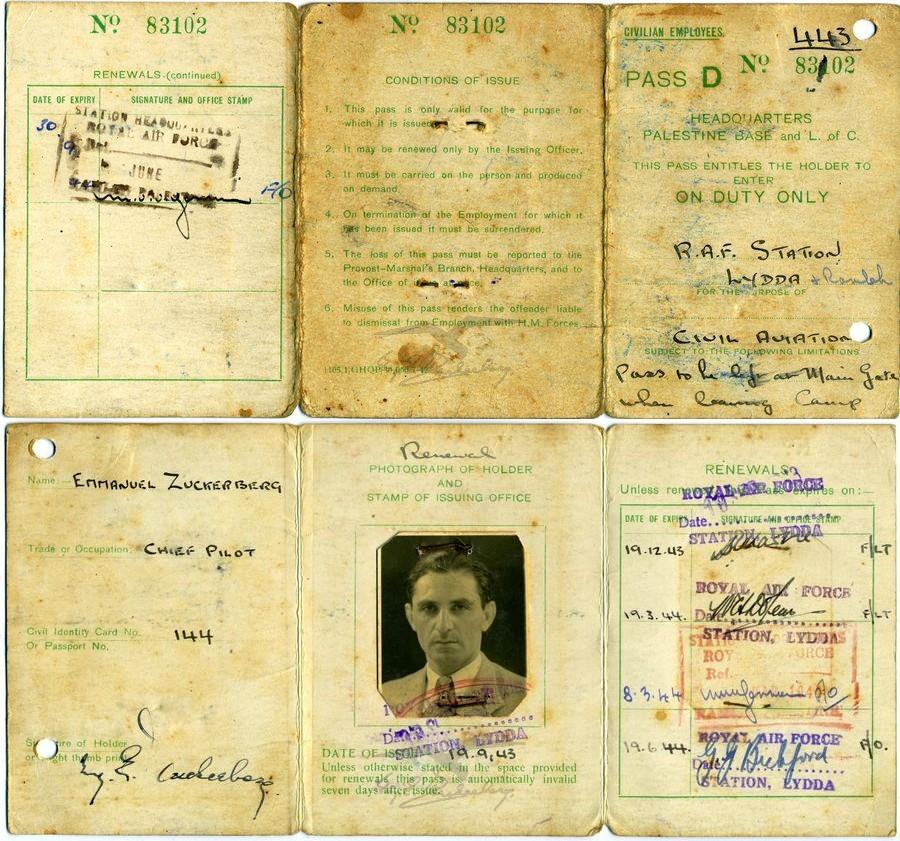 Nº 83102
RENEWALS (continued)
DATE OF EXPIRY
SIGNATURE AND OFFICE STAMP
STATION HEADQUARTERS
30
ROYAL AIR FORCE
JUNE
Nº 83102
CONDITIONS OF ISSUE
1. This pass is only valid for the purpose for
which it is issued
2. It may be renewed only by the Issuing Officer.
3. It must be carried on the person and produced
on demand.
4. On termination of the Employment for which it
has been issued it must be surrendered.
5. The loss of this pass must be reported to the
Provost-Marshal's Branch, Headquarters, and to
the Office of
6. Misuse of this pass renders the offender liable
to dismissal from Employment with H.M. Forces
443
CIVILIAN EMPLOYEES
PASS D Nº 83102
HEADQUARTERS
PALESTINE BASE and L. of C.
THIS PASS ENTITLES THE HOLDER TO
ENTER
ON DUTY ONLY
R.A.F. STATION
LYDDA + Ramleh
FOR THE PURPOSE OF
CIVIL AVIATION
SUBJECT TO THE FOLLOWING LIMITATIONS
Pass to be left at Main Gate
when leaving Camp
Name: EMMANUEL ZUCKERBERG
Trade or Occupation. CHIEF PILOT
Civil Identity Card No. 144
Or Passport No.
Signature of Holder
or right thumb print
Renewal
PHOTOGRAPH OF HOLDER
AND
STAMP OF ISSUING OFFICE
STATION, LYDDA
DATE OF ISSUE 19.9.43
Unless otherwise stated in the space provided
for renewals this pass is automatically invalid
seven days after issue.
RENEWALS
Unless renewed this pass expires on:—
ROYAL AIR FORCE
DATE OF EXPIRY
SIGNATURE AND OFFICE STAMP
Date
STATION, LYDDA
19.12.43
F/LT
ROYAL AIR FORCE
19.3.44.
Date
F/LT
STATION, LYDDA
8.3.44
ROYAL AIR FORCE
19.6.44.
F/O.
Date
STATION, LYDDA